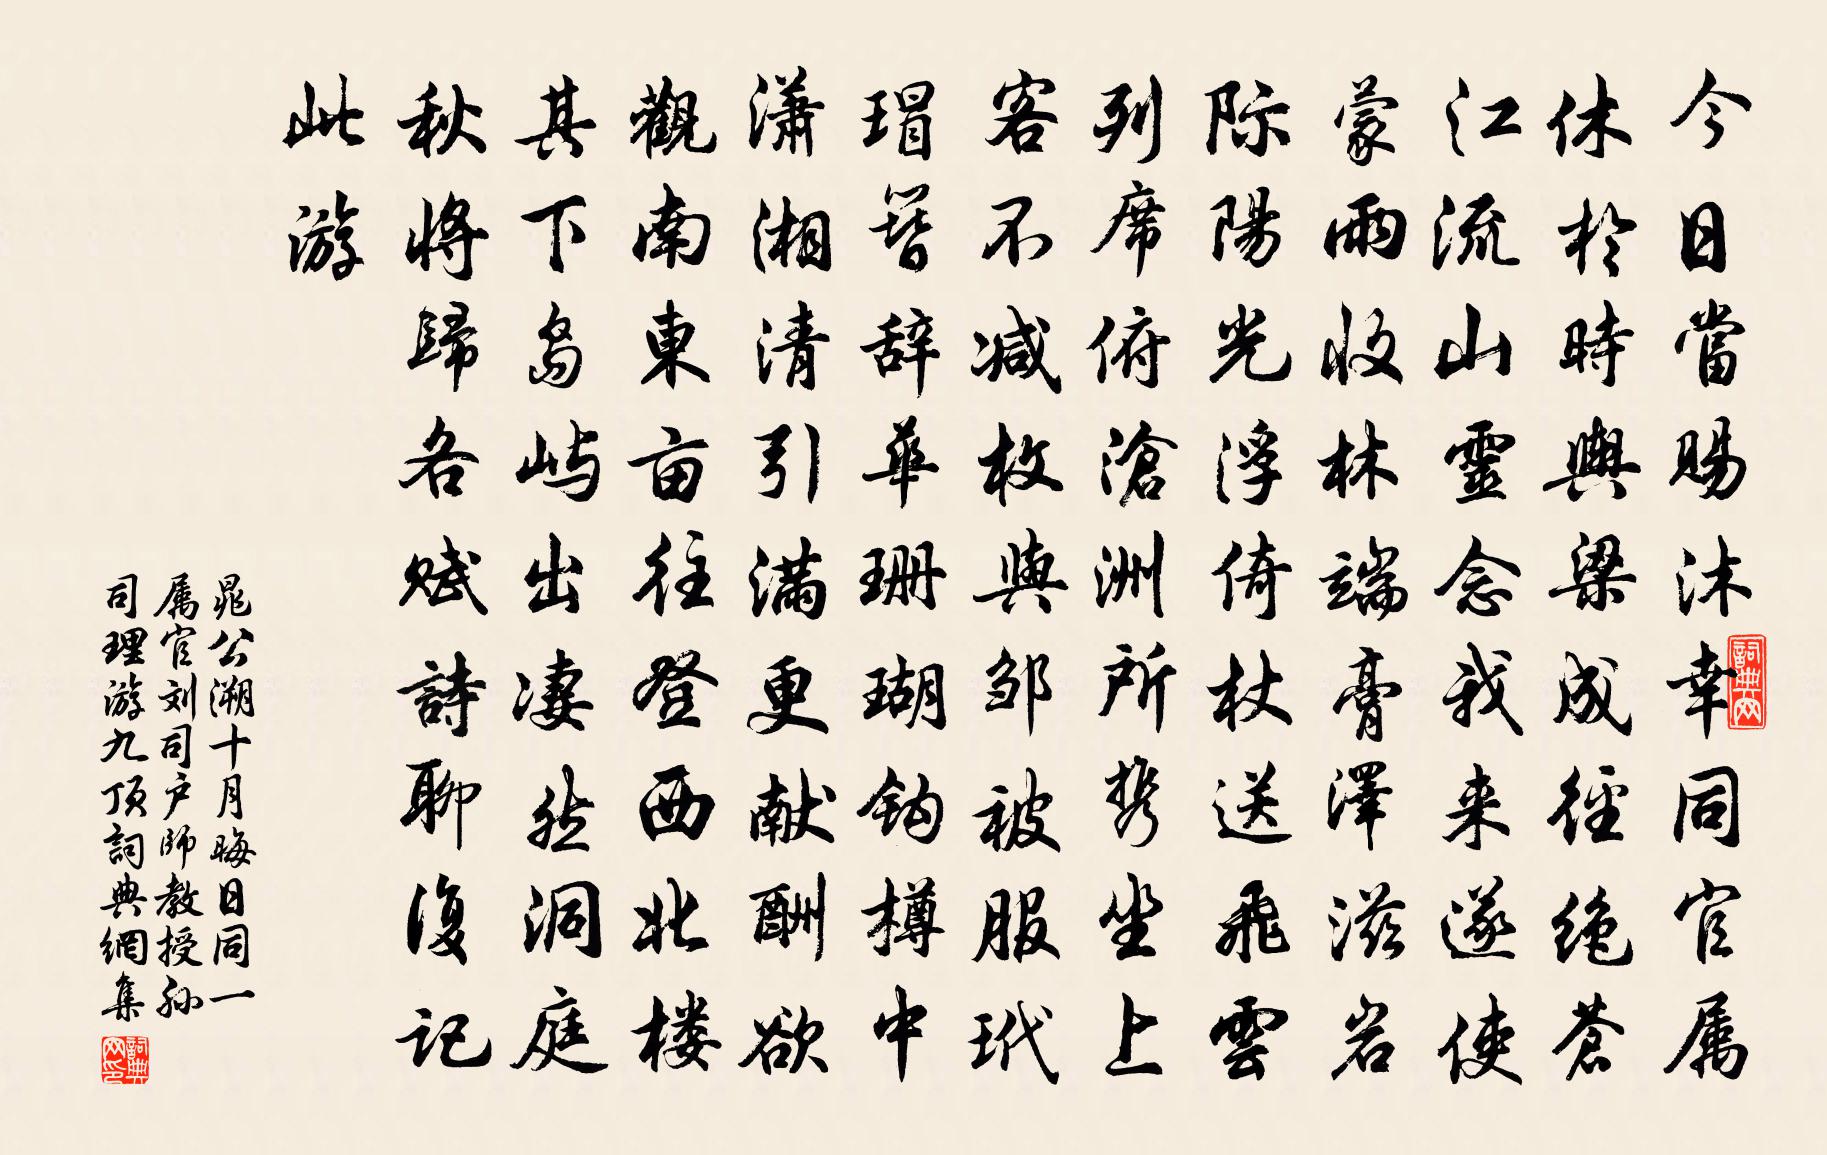 今日當賜沐幸同官属
休於時輿梁成徑绝蒼
江流山靈念我来遂使
蒙雨收林端膏澤滋岩
际陽光浮倚杖送飛雲
列席俯滄洲所携坐上
客不减枚與邹被服玳
瑁簪辞華珊瑚鈎樽中
潇湘清引满更献酬欲
觀南東亩往登西北楼
其下岛屿出凄然洞庭
秋將歸各赋詩聊復記
此游
晁公溯十月晦日同一
属官刘司户師教授孙
司理游九顶詞典網集
詞典网
詞典网印